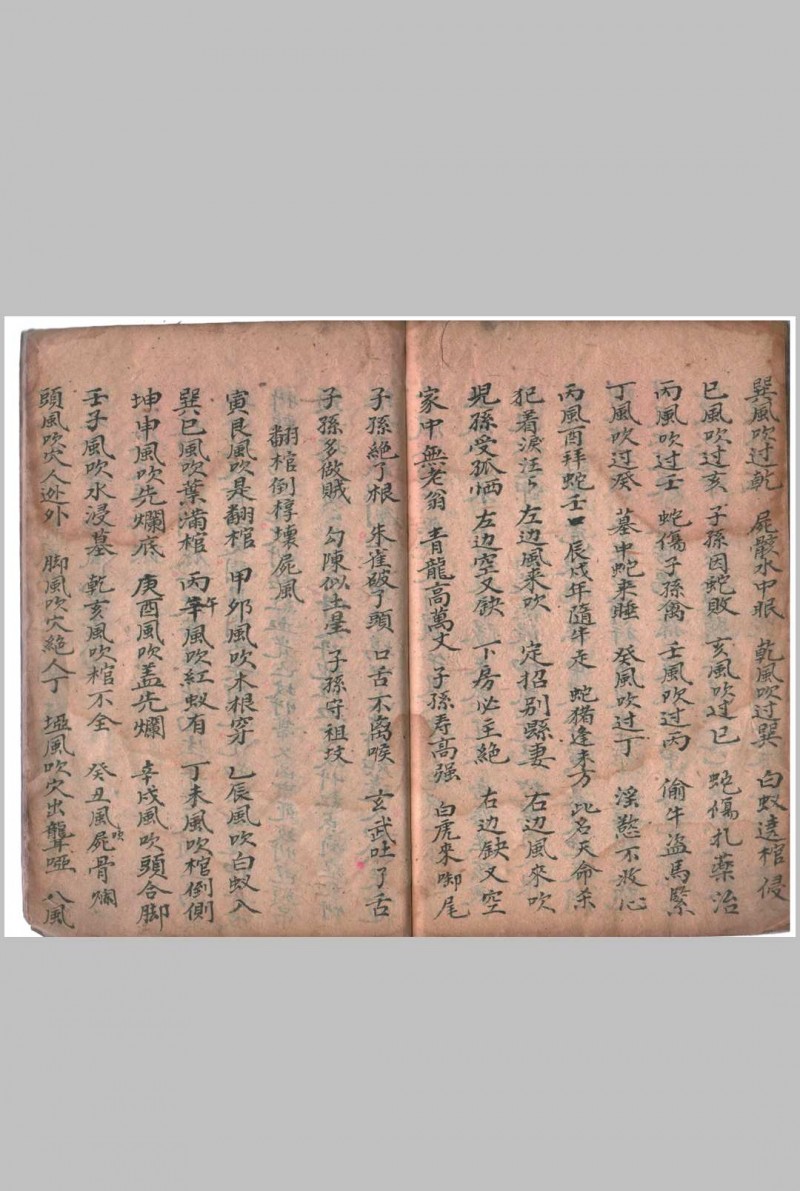 巽風吹过乾 屍骸水中眠 乾風吹过巽 白蚁遶棺侵
巳風吹过亥 子孫因蛇敗 亥風吹过巳 蛇傷扎薬治
丙風吹过壬 蛇傷子孫禽 壬風吹过丙 偷牛盗馬緊
丁風吹过癸 墓中蛇来睡 癸風吹过丁 淫慾不救心
丙風酉拜蛇壬口 辰戌年隨牛走 蛇猪逢来方 此名天命杀
犯着淚汪々 左边風来吹 定招别縣妻 右边風來吹
児孫受孤恓 左边空又缺 下房必主絶 右边缺又空
家中無老翁 青龍高萬丈 子孫寿高强 白虎來啣尾
子孫絶了根 朱雀破了頭 口舌不离喉 玄武吐了舌
子孫多做賊 勾陳似土星 子孫守祖坟
翻棺倒槨壊屍風
寅艮風吹是翻棺 甲夘風吹木根穿 乙辰風吹白蚁入
巽巳風吹葉满棺 丙午風吹紅蚁有 丁未風吹棺倒側
坤申風吹先爛底 庚酉風吹盖先爛 辛戌風吹頭合脚
壬子風吹水浸墓 乾亥風吹棺不全 癸丑風吹屍骨爛
頭風吹穴人迯外 脚風吹穴絶人丁 風吹穴出聾啞 八風